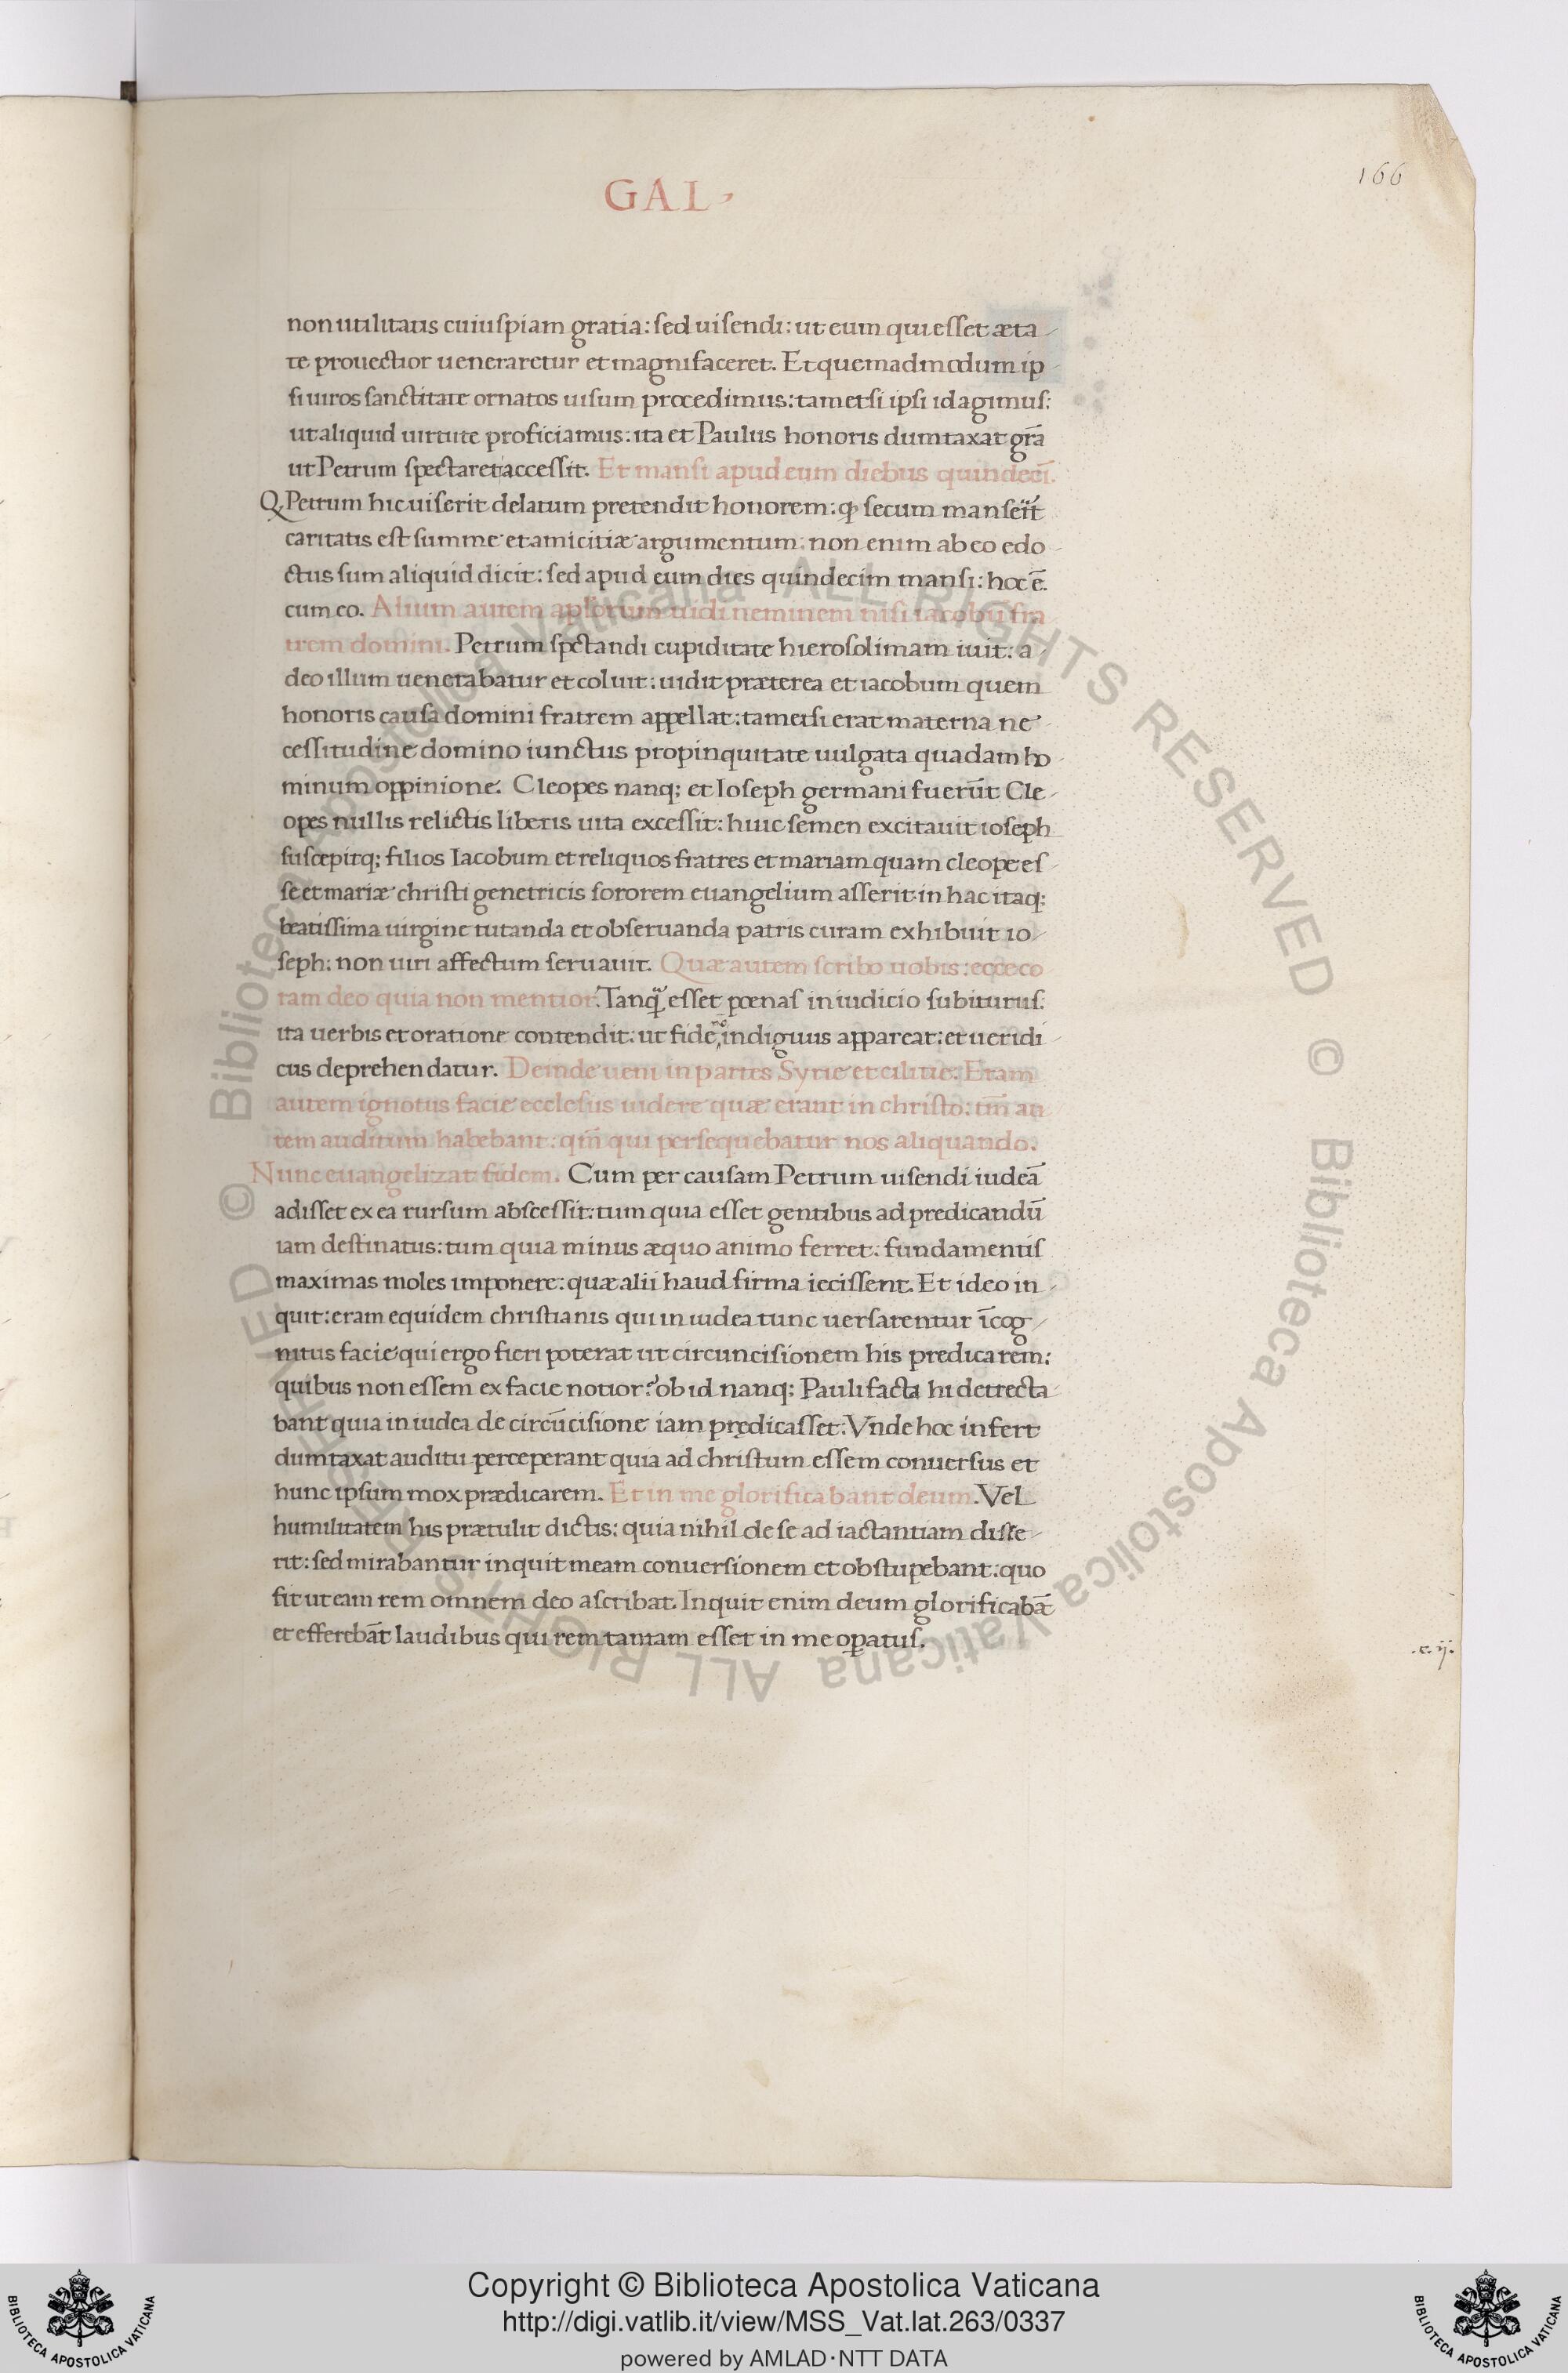 GAL
166
non utilitatis cuiuspiam gratia: sed uisendi: ut eum qui esset æta-
te prouectior ueneraretur et magnifaceret. Et quemadmodum ip
si uiros sanctitate ornatos uisum procedimus: tametsi ipsi id agimus:
ut aliquid uirtute proficiamus: ita et Paulus honoris dumtaxat grã
ut Petrum spectaret accessit. Et mansi apud eum diebus quindecĩ.
Q. Petrum hic uiserit delatum pretendit honorem: ꝙ secum manserit
caritatis est summe et amicitiæ argumentum: non enim ab eo edo-
ctus sum aliquid dicit: sed apud eum dies quindecim mansi: hoc ẽ.
cum eo. Alium autem apl'orum uidi neminem nisi iacobũ fra
trem domini. Petrum spectandi cupiditate hierosolimam iuit: a-
deo illum uenerabatur et coluit: uidit præterea et iacobum quem
honoris causa domini fratrem appellat: tametsi erat materna ne
cessitudine domino iunctus propinquitate uulgata quadam ho-
minum oppinione. Cleopes nanq; et Ioseph germani fuerũt Cle-
opes nullis relictis liberis uita excessit: huic semen excitauit ioseph
suscepitq; filios Iacobum et reliquos fratres et mariam quam cleope es
se et mariæ christi genetricis sororem euangelium asserit in hac itaq;
beatissima uirgine tutanda et obseruanda patris curam exhibuit io-
seph: non uiri affectum seruauit. Quæ autem scribo uobis: ecce co
ram deo quia non mentior. Tanq̃ esset pœnas in iudicio subiturus:
ita uerbis et oratione contendit: ut fide nõ indignus appareat: et ueridi-
cus deprehendatur. Deinde ueni in partes Syrie et cilitie. Eram
autem ignotus facie ecclesiis iudere quæ erant in christo: tm̃ au
tem auditum habebant: qm̃ qui persequebatur nos aliquando.
Nunc euangelizat fidem. Cum per causam Petrum uisendi iudeã
adisset ex ea rursum abscessit: tum quia esset gentibus ad predicandũ
iam destinatus: tum quia minus æquo animo ferret: fundamentis
maximas moles imponere: quæ alii haud firma iecissent. Et ideo in-
quit: eram equidem christianis qui in iudea tunc uersarentur ĩcog-
nitus facie qui ergo fieri poterat ut circuncisionem his predicarem:
quibus non essem ex facie notior? ob id nanq; Pauli facta hi detrecta-
bant quia in iudea de circũcisione iam prędicasset: Vnde hoc infert
dumtaxat auditu perceperant quia ad christum essem conuersus et
hunc ipsum mox prædicarem. Et in me glorificabant deum. Vel
humilitatem his prætulit dictis: quia nihil de se ad iactantiam disse-
rit: sed mirabantur inquit meam conuersionem et obstupebant: quo
fit ut eam rem omnem deo ascribat. Inquit enim deum glorificabãt
et efferebãt laudibus qui rem tantam esset in me oꝑatus.
.c.ij.
© Biblioteca Apostolica Vaticana ALL RIGHTS RESERVED © Biblioteca Apostolica Vaticana ALL RIGHTS RESERVED
Copyright © Biblioteca Apostolica Vaticana
http://digi.vatlib.it/view/MSS_Vat.lat.263/0337
powered by AMLAD·NTT DATA
BIBLIOTECA APOSTOLICA VATICANA
BIBLIOTECA APOSTOLICA VATICANA